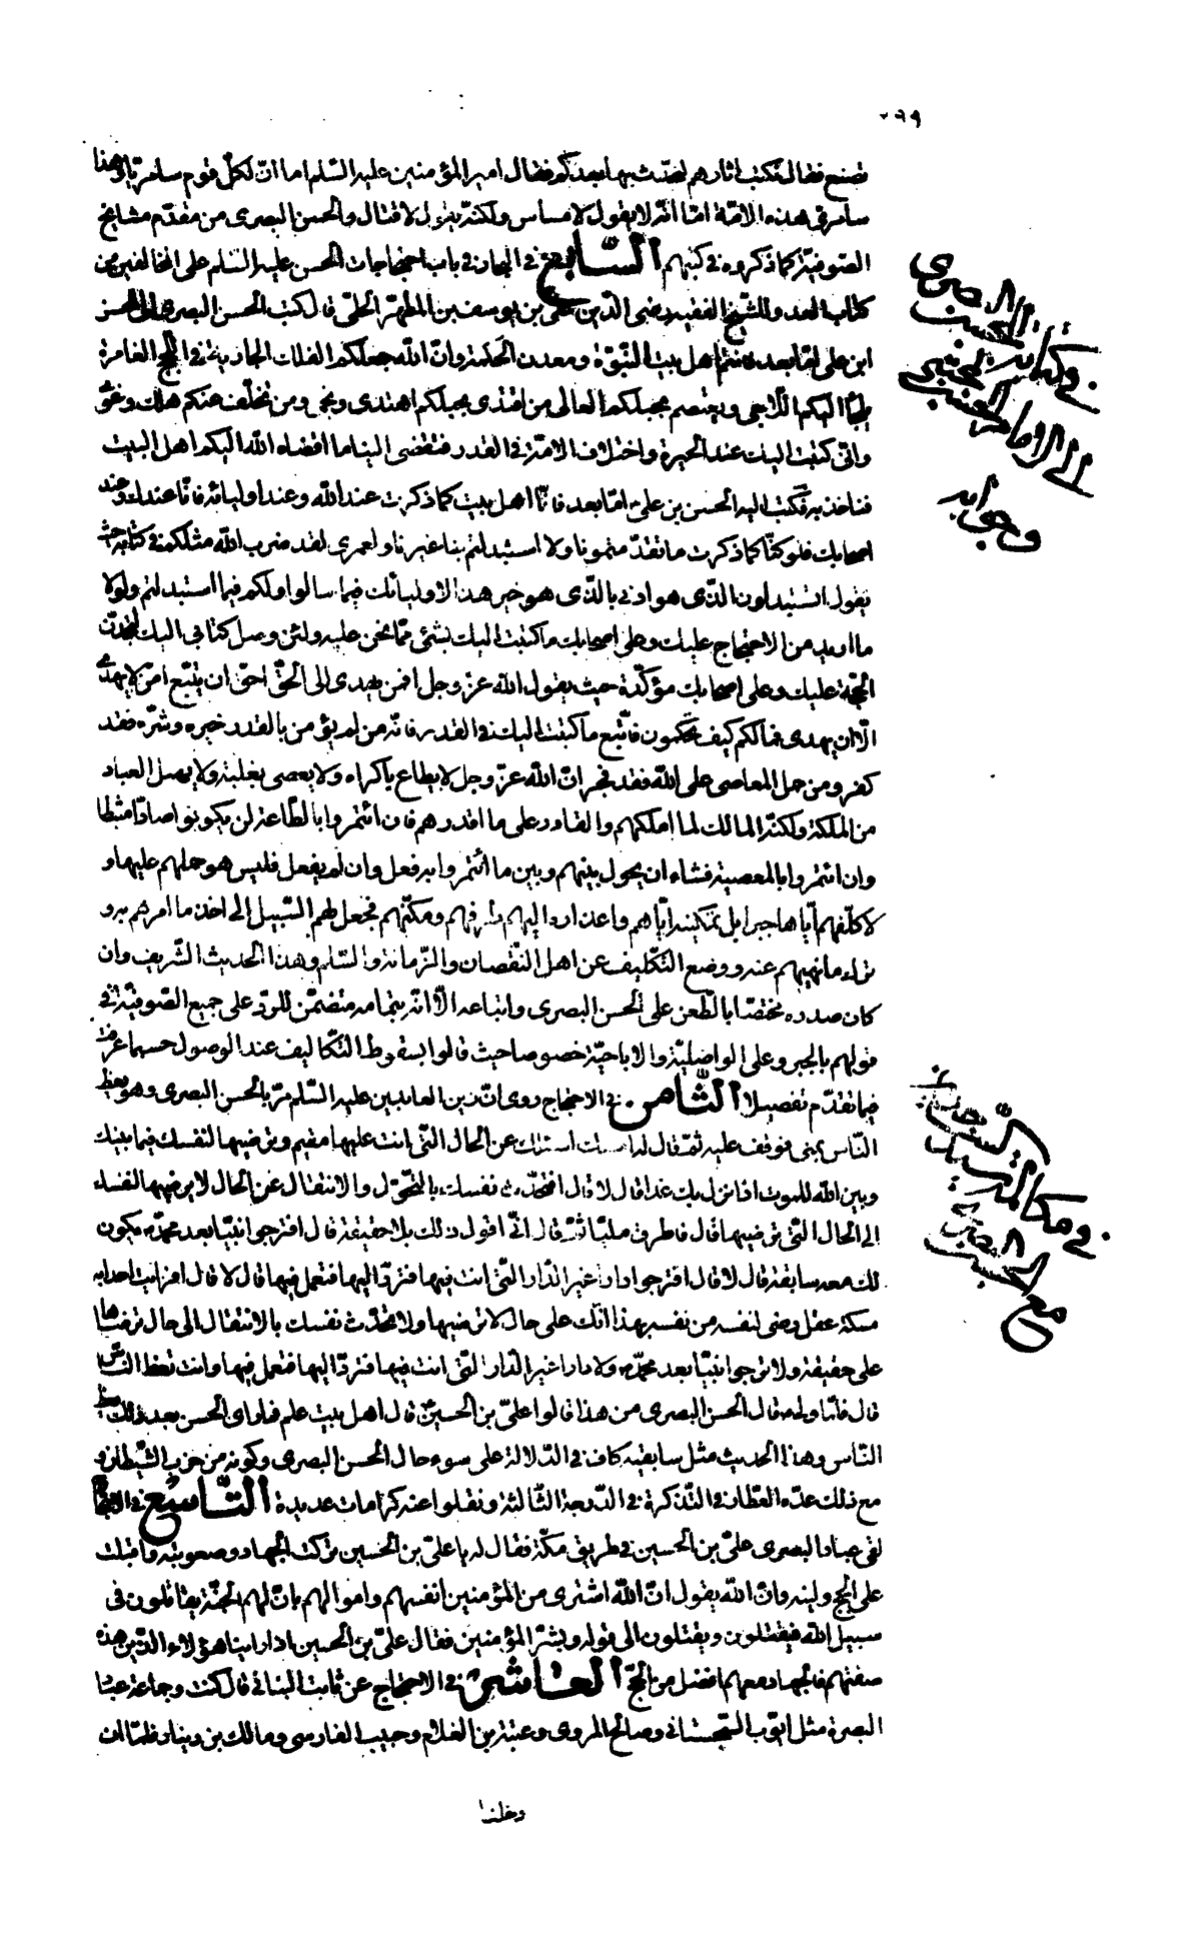 ٢٦٩
تصنع فقال نكتب اثارهم لنحدّث بها بعدكم فقال امير المؤمنين عليه السّلم اما انّ لكلّ قوم سامريّا وهذا
سامرىّ هذه الامّة امّا انّه لا يقول لا مساس ولكنّه يقول لا قتال والحسن البصرى من مقدّم مشايخ
الصّوفيّة كما ذكروه فى كتبهم السّابع فى البحار فى باب احتجاجات الحسن عليه السّلم على المخالفين من
كتاب العدد للشّيخ الفقيه رضى الدّين علىّ بن يوسف بن المطهّر الحلّى قال كتب الحسن البصرى الى الحسن
ابن على امّا بعد فانتم اهل بيت النّبوّة ومعدن الحكمة وانّ الله جعلكم الفلك الجارية فى اللّجج الغامرة
يلجأ اليكم اللّاجى ويعتصم بحبلكم الغالى من اقتدى بحبلكم اهتدى ونجى ومن تخلّف عنكم هلك وغوى
وانّى كتبت اليك عند الحيرة واختلاف الامّة فى القدر فتقضى الينا ما افضاه الله اليكم اهل البيت
فناخذ به فكتب اليه الحسن بن علىّ امّا بعد فانّا اهل بيت كما ذكرت عند الله وعند اوليائه فامّا عندك وعند
اصحابك فلو كنّا كما ذكرت ما تقدّمتمونا ولا استبدلتم بنا غيرنا ولعمرى لقد ضرب الله مثلكم فى كتابه حيث
يقول اتستبدلون الّذى هو ادنى بالّذى هو خير هذا لاوليائك فيما سالوا ولكم فيما استبدلتم ولولا
ما اريد من الاحتجاج عليك وعلى اصحابك ما كتبت اليك بشئ ممّا نحن عليه ولئن وصل كتابى اليك لتجدنّ
الحجّة عليك وعلى اصحابك مؤكّدة حيث يقول الله عزّ وجل افمن يهدى الى الحقّ احقّ ان يتّبع امّن لا يهدّى
الّا ان يهدى فما لكم كيف تحكمون فاتّبع ما كتبت اليك فى القدر فانّه من لم يؤمن بالقدر خيره وشرّه فقد
كفر ومن حمل المعاصى على الله فقد فجر انّ الله عزّ وجل لا يطاع باكراه ولا يعصى بغلبة ولا يهمل العباد
من الملكة ولكنّه المالك لما املكهم والقادر على ما اقدرهم فان ائتمروا بالطّاعة لن يكون صادّا مثبّطا
وان ائتمروا بالمعصية فشاء ان يحول بينهم وبين ما ائتمروا به فعل وان لم يفعل فليس هو حملهم عليها و
لا كلّفهم ايّاها جبرا بل تمكينه ايّاهم واعذاره اليهم وطرقهم ومكّنهم فجعل لهم السّبيل الى اخذ ما امرهم به و
ترك ما نهيهم عنه ووضع التّكليف عن اهل النّقصان والزّمانة والسّلم وهذا الحديث الشّريف وان
كان صدره مختصّا بالطّعن على الحسن البصرى واتباعه الّا انّه بتمامه متضمّن للرّد على جميع الصّوفيّة فى
قولهم بالجبر وعلى الواصليّة والاباحيّة خصوصا حيث قالوا بسقوط التّكاليف عند الوصول حسبما عرفت
فيما تقدّم تفصيلا الثّامن فى الاحتجاج روى انّ زين العابدين عليه السّلم مرّ بالحسن البصرى وهو يعظ
النّاس بمنى فوقف عليه ثمّ قال له امسك اسئلك عن الحال الّتى انت عليها مقيم وترضيها لنفسك فيما بينك
وبين الله للموت اذا نزل بك غدا قال لا قال افتحدّث نفسك بالتّحوّل والانتقال عن الحال لا ترضيها لنفسك
الى الحال الّتى ترضيها قال فاطرق مليّا ثمّ قال انّى اقول ذلك بلا حقيقة قال افترجو انبيّا بعد محمّد يكون
لك معه سابقة قال لا قال افترجو ادارا غير الدّار الّتى انت فيها فتردّ اليها فتعمل فيها قال لا قال افرايت احدا به
مسكة عقل رضى لنفسه من نفسه بهذا انّك على حال لا ترضيها ولا تحدّث نفسك بالانتقال الى حال ترضاها
على حقيقة ولا ترجو انبيّا بعد محمّد ولا دارا غير الدّار الّتى انت فيها فتردّ اليها فتعمل فيها وانت تعظ النّاس
قال فلمّا ولى قال الحسن البصرى من هذا قالوا علىّ بن الحسين قال اهل بيت علم فما راى الحسن بعد ذلك يعظ
النّاس وهذا الحديث مثل سابقيه كاف فى الدّلالة على سوء حال الحسن البصرى وكونه من حزب الشّيطان و
مع ذلك عدّه العطّار فى التّذكرة فى الدّرجة الثّالثة ونقلوا عنه كرامات عديدة التّاسع فى الاحتجاج
لقى عباد البصرى علىّ بن الحسين فى طريق مكّة فقال له يا علىّ بن الحسين تركت الجهاد وصعوبته واقبلت
على الحجّ ولينه وانّ الله يقول انّ الله اشترى من المؤمنين انفسهم واموالهم بانّ لهم الجنّة يقاتلون فى
سبيل الله فيقتلون ويقتلون الى قوله وبشّر المؤمنين فقال علىّ بن الحسين اذا راينا هؤلاء الّذين هذه
صفتهم فالجهاد معهم افضل من الحجّ العاشر فى الاحتجاج عن ثابت البنانى قال كنت وجماعة عبّاد
البصرة مثل ايّوب السّجستانى وصالح المروى وعتبة بن الغلام وحبيب الفارسى ومالك بن دينار فلمّا ان
فى مكتابة الحسن البصرى
الى الامام الحسن المجتبى
وجوابه
فى مكالمة السيد السجاد
مع الحسن البصرى
دخلنا